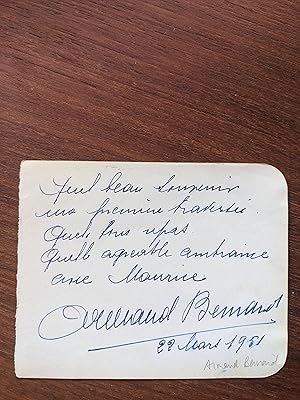 Quel beau souvenir
ma première traversée.
Quels bons repas.
Quelle agréable ambiance
avec Maurice
Armand Bernard
22 Mars 1951
Armand Bernard